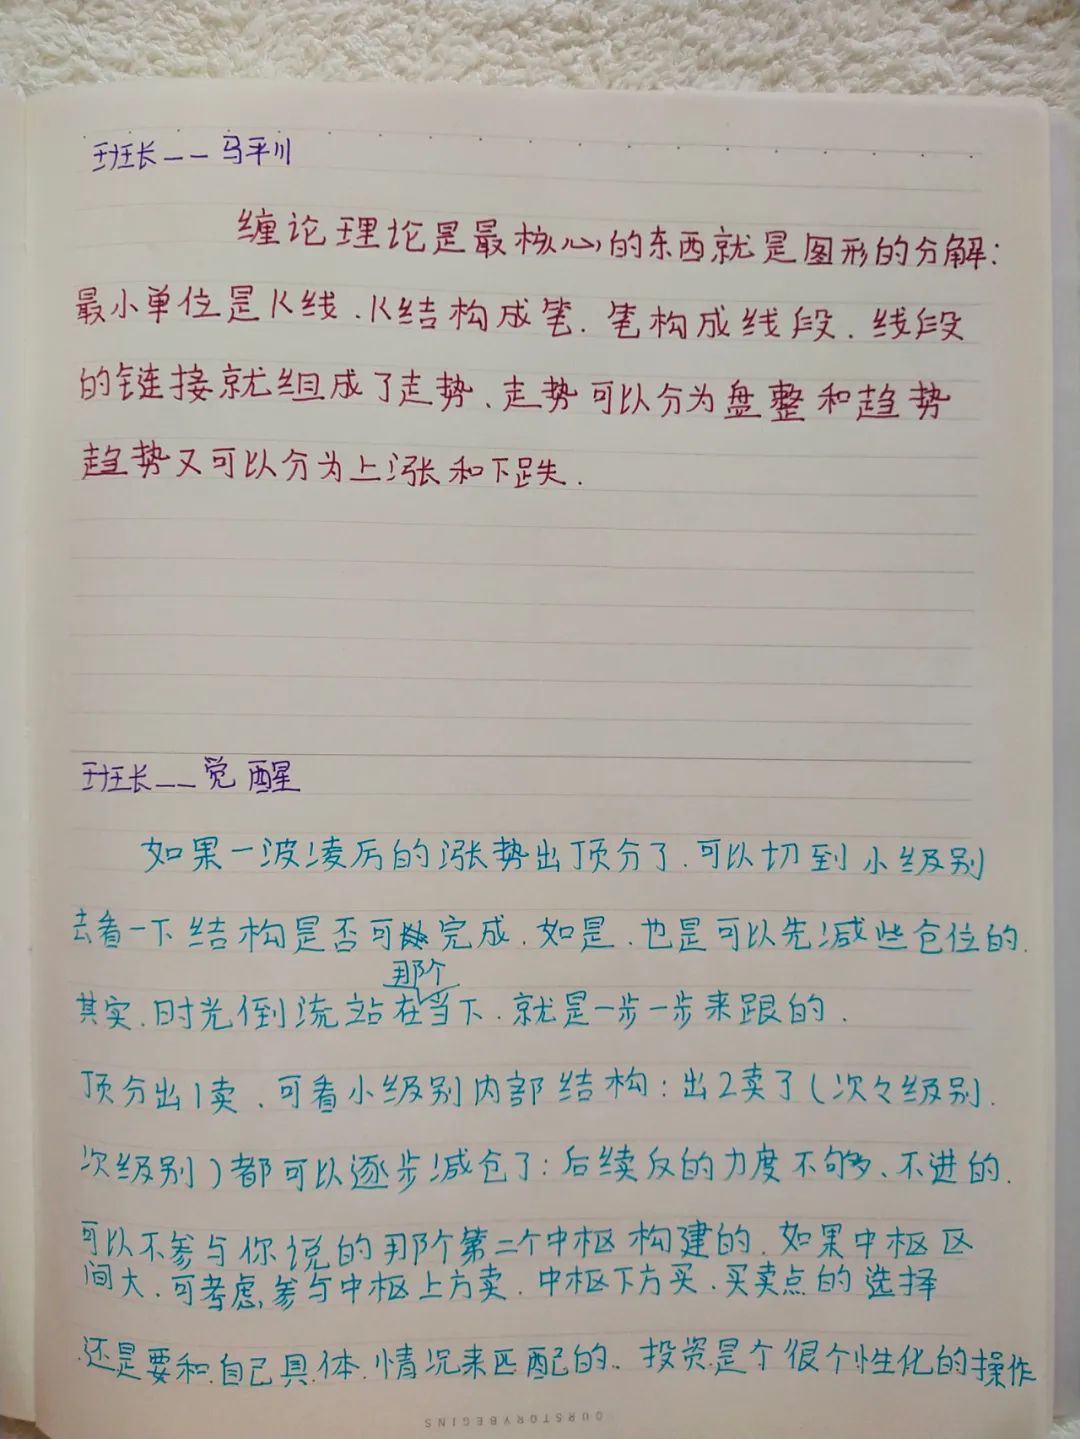 班长——马平川
缠论理论是最核心的东西就是图形的分解:
最小单位是K线.K结构成笔.笔构成线段.线段
的链接就组成了走势、走势可以分为盘整和趋势
趋势又可以分为上涨和下跌.
班长——觉醒
如果一波凌厉的涨势出顶分了.可以切到小级别
去看一下结构是否可完成.如是.也是可以先减些仓位的.
那个
其实.时光倒流站在当下.就是一步一步来跟的.
顶分出1卖.可看小级别内部结构:出2卖了(次々级别.
次级别)都可以逐步减仓了:后续反的力度不够、不进的.
可以不参与你说的那个第二个中枢构建的.如果中枢区
间大.可考虑参与中枢上方卖.中枢下方买.买卖点的选择
还是要和自己具体情况来匹配的.投资是个很个性化的操作
OURSTORYBEGINS